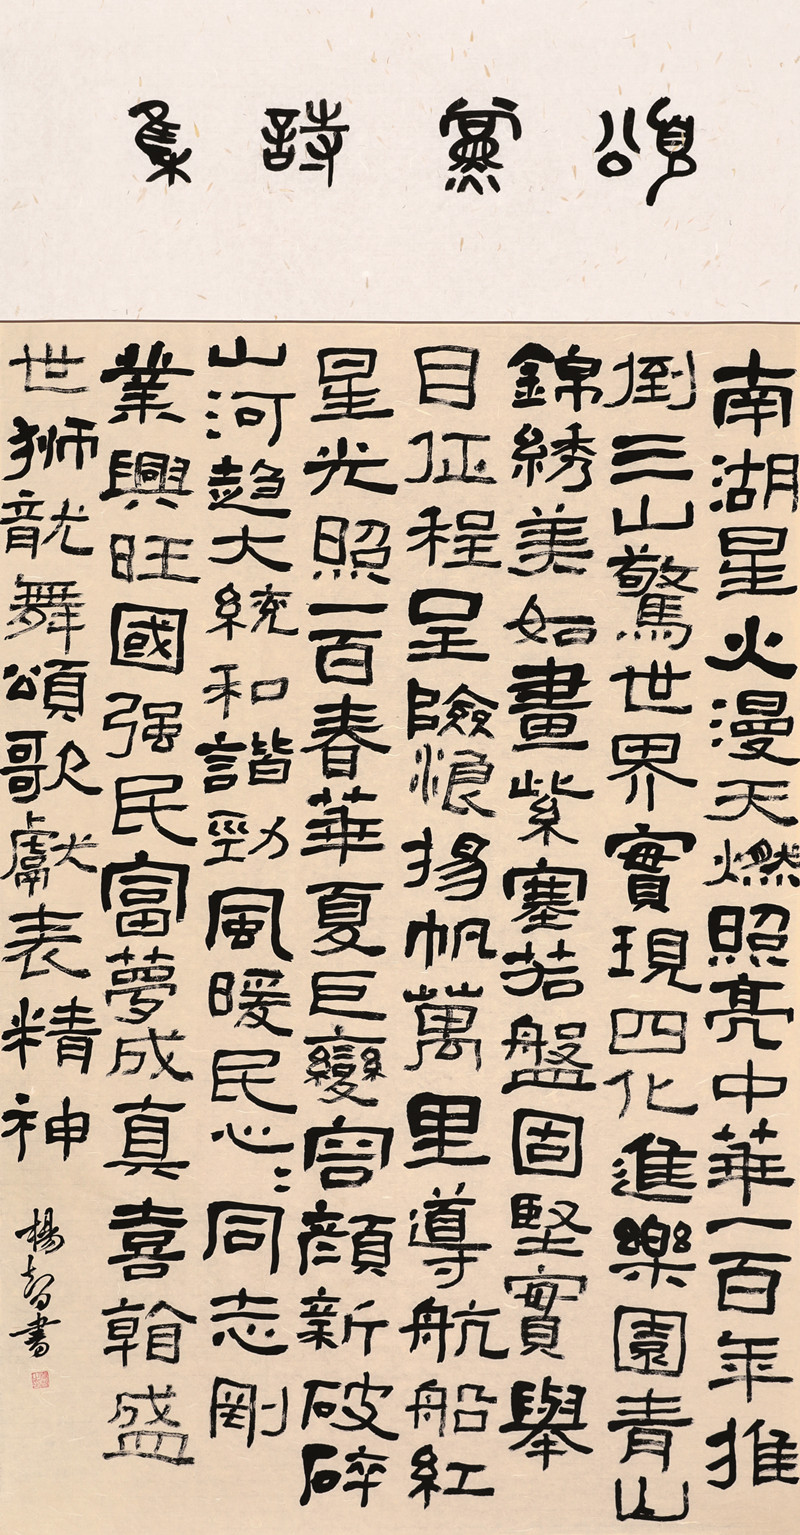 頌黨詩集
南湖星火漫天燃照亮中華一百年推
倒三山驚世界實現四化進樂園青山
錦綉美如畫紫塞若盤固堅實舉
目征程呈險浪揚帆萬里導航船紅
星光照一百春華夏巨變容顔新破碎
山河趋大統和諧勁風暖民心心同志剛
業興旺國强民富夢成真喜翰盛
世狮龍舞頌歌獻表精神
楊智書